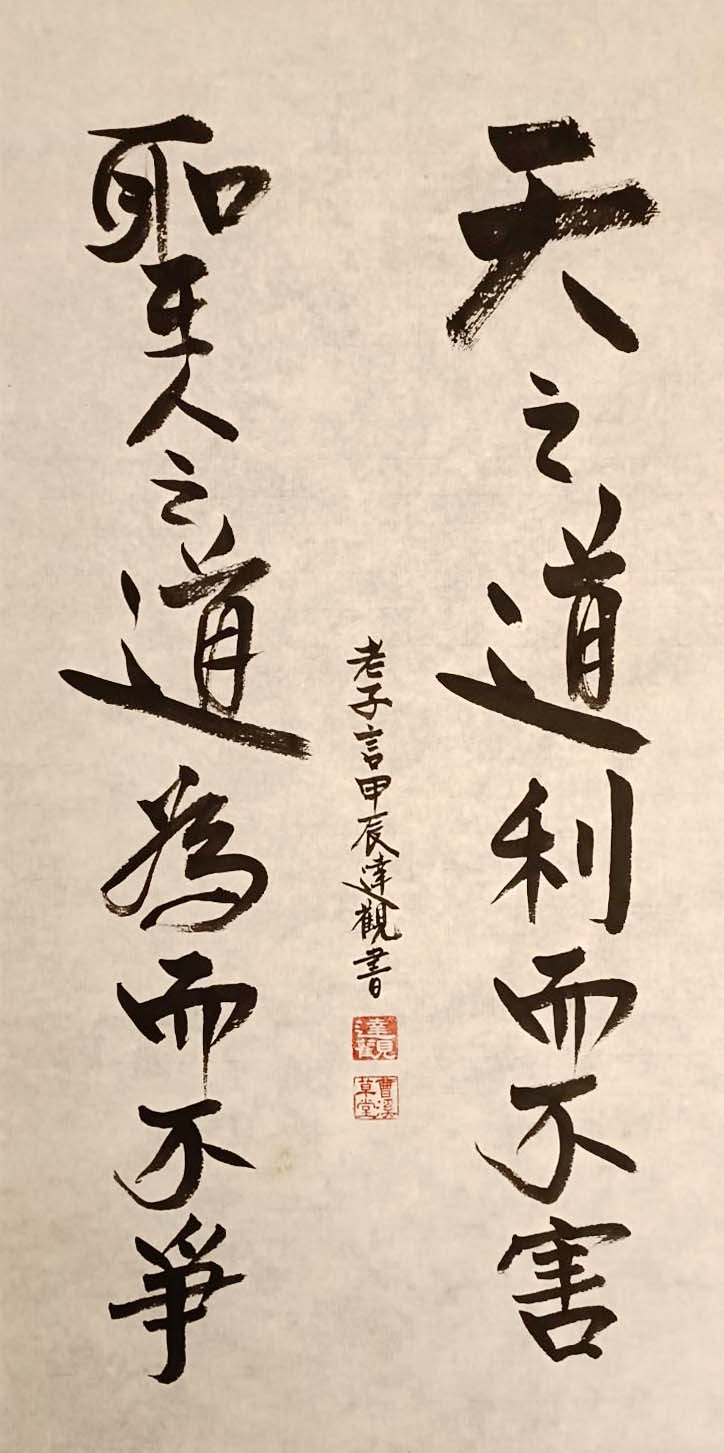 天之道利而不害
聖人之道為而不爭
老子言甲辰達觀書
達觀
曹溪草堂